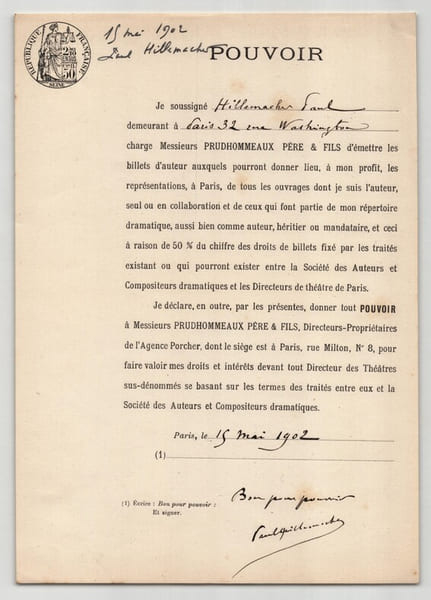 15 mai 1902
Paul Hillemacher
RÉPUBLIQUE FRANÇAISE
SEINE
POUVOIR
Je soussigné Hillemacher Paul
demeurant à Paris 32 rue Washington
charge Messieurs PRUDHOMMEAUX PÈRE & FILS d'émettre les
billets d'auteur auxquels pourront donner lieu, à mon profit, les
représentations, à Paris, de tous les ouvrages dont je suis l'auteur,
seul ou en collaboration et de ceux qui font partie de mon répertoire
dramatique, aussi bien comme auteur, héritier ou mandataire, et ceci
à raison de 50 % du chiffre des droits de billets fixé par les traités
existant ou qui pourront exister entre la Société des Auteurs et
Compositeurs dramatiques et les Directeurs de théâtre de Paris.
Je déclare, en outre, par les présentes, donner tout POUVOIR
à Messieurs PRUDHOMMEAUX PÈRE & FILS, Directeurs-Propriétaires
de l'Agence Porcher, dont le siège est à Paris, rue Milton, N° 8, pour
faire valoir mes droits et intérêts devant tout Directeur des Théâtres
sus-dénommés se basant sur les termes des traités entre eux et la
Société des Auteurs et Compositeurs dramatiques.
Paris, le 15 mai 1902
(1)
(1) Écrire : Bon pour pouvoir :
Et signer.
Bon pour pouvoir
Paul Hillemacher